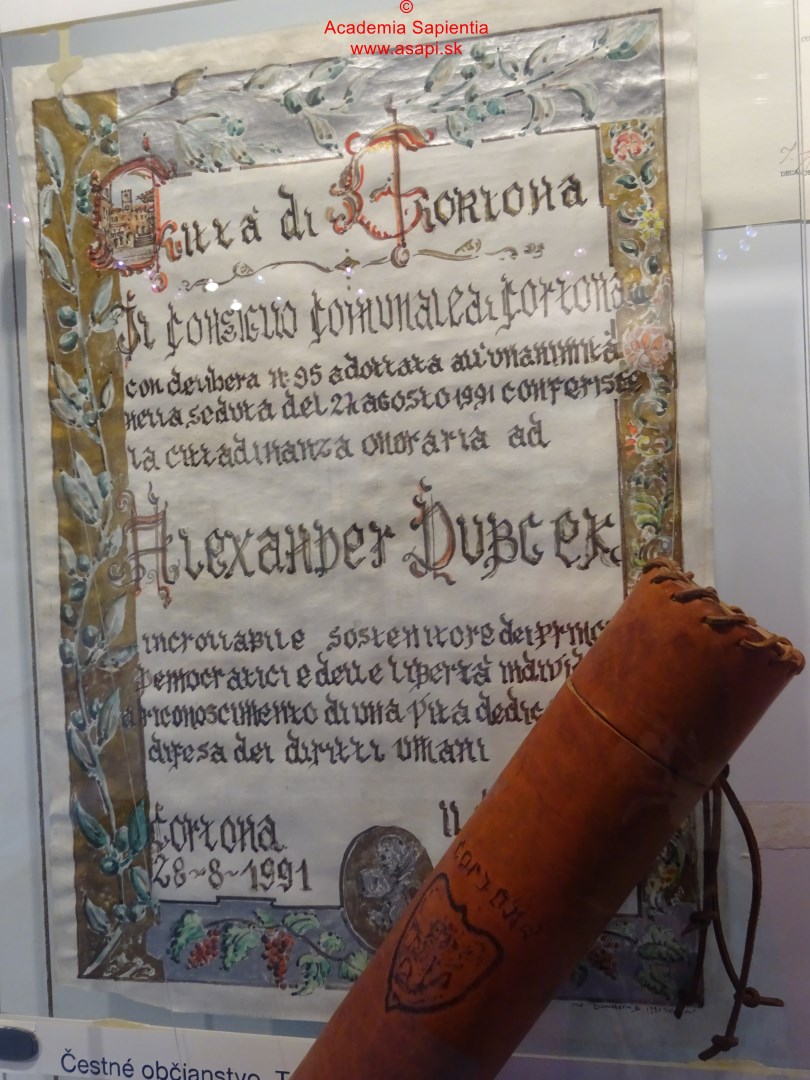 ©
Academia Sapientia
www.asapi.sk
Città di Cortona
Il Consiglio Comunale di Cortona
con delibera n. 95 adottata all'unanimità
nella seduta del agosto 1991 conferisce
la cittadinanza onoraria ad
Alexander Dubcek
incrollabile sostenitore dei princ
democratici e delle libertà indivi
a riconoscimento di una vita dedic
difesa dei diritti umani
Cortona il
28-8-1991
Cortona
Čestné občianstvo, T